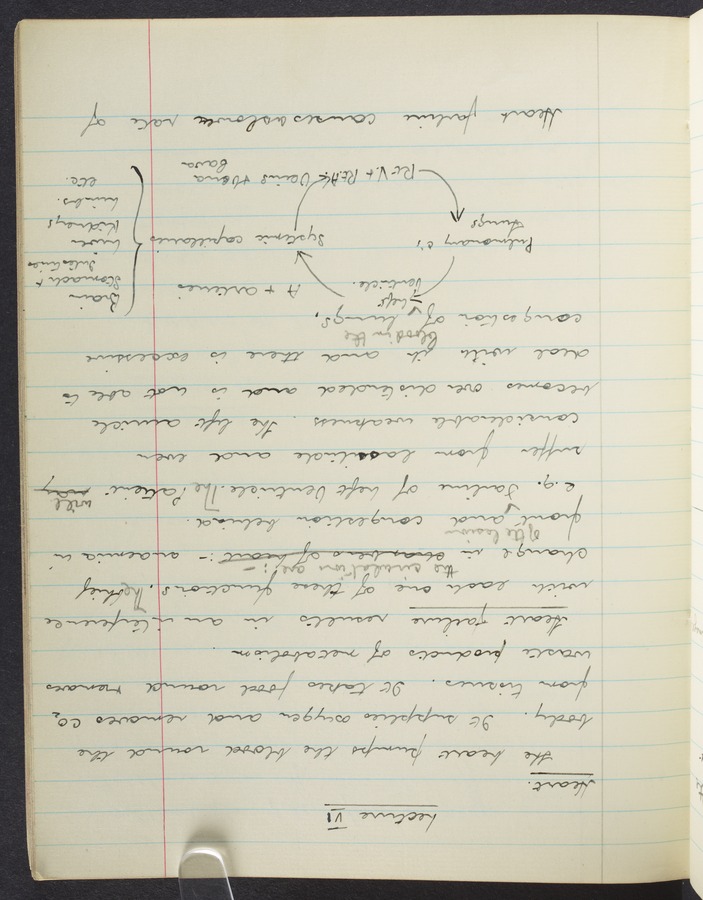 Lecture VI
Heart.
the heart pumps the blood round the
body. It supplies oxygen and removes CO2
from tissues. It takes food round removes
waste products of metabolism.
Heart failure results in an interference
with each one of these functions. The chief
the circulation are :-
change in chambers of heart :- anaemia in
of the lesion
front and congestion behind.
e.g. Failure of Left Ventricle. The Patient may
will
suffer from lassitude and even
considerable weakness. the left auricle
becomes over distended and is not able to
deal with it and there is excessive
blood in the
congestion of lungs.
Left
Ventricle.
A + arteries
Pulmonary c's
Lungs
Systemic capillaries
Rt. V. + Rt. A
Veins + Vena
Cava
Brain
Stomach +
Intestines
Liver
Kidneys
Limbs.
etc.
Heart failure causes a slower rate of